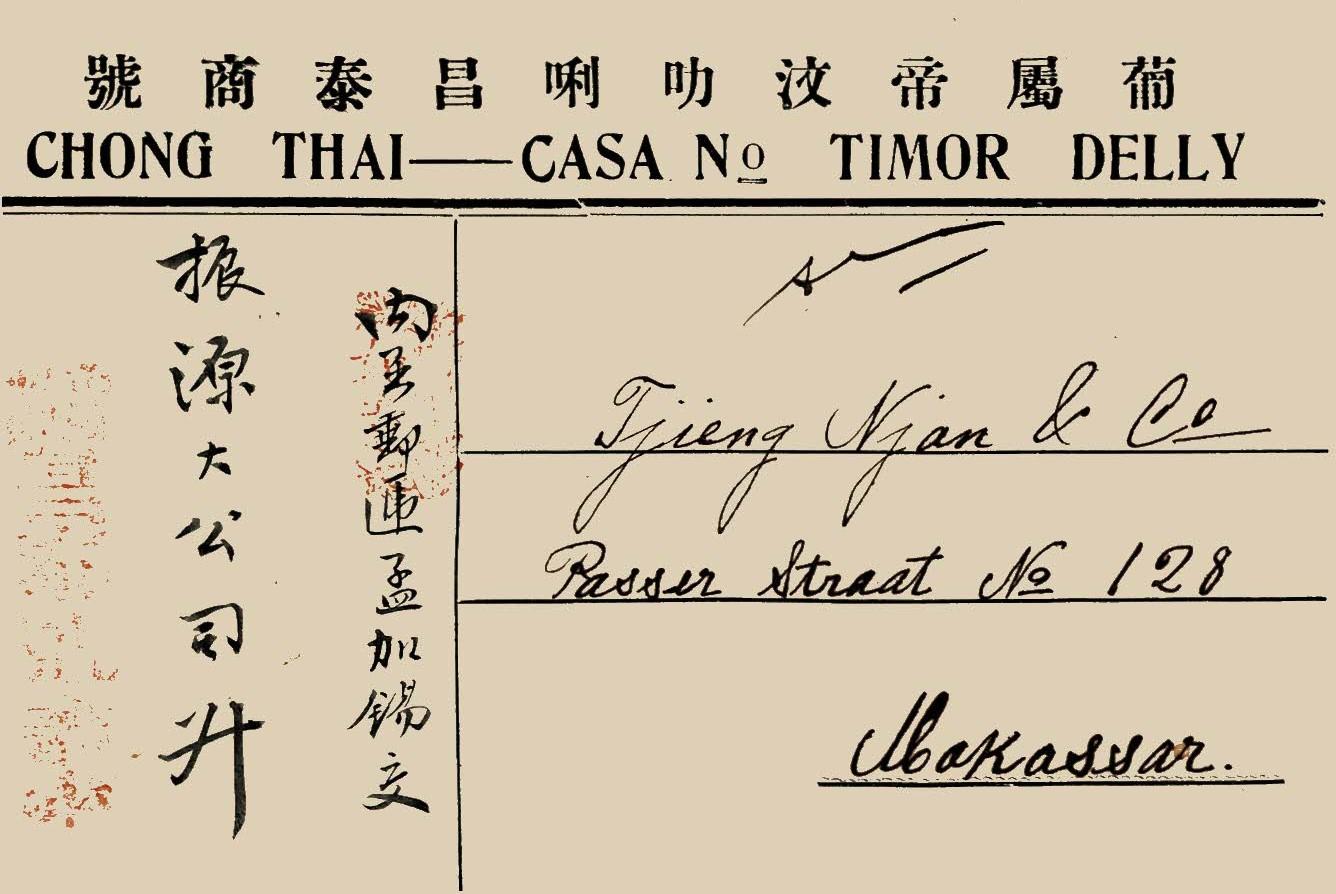 葡屬帝汶叻唎昌泰商號
CHONG THAI—CASA No TIMOR DELLY
內呈郵遞孟加錫交
振源大公司升
Tjieng Njan & Co
Passer Straat No 128
Makassar.